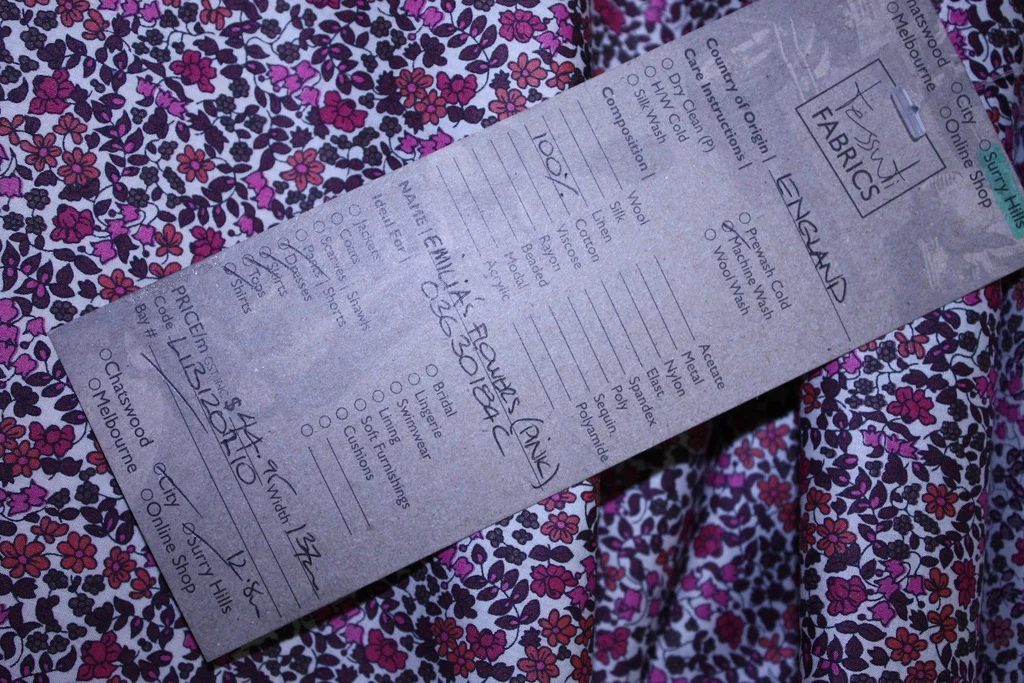 Chatswood ○ City ○ Surry Hills
○ Melbourne ○ Online Shop
Tessuti
FABRICS
Country of Origin | ENGLAND
Care Instructions |
○ Dry Clean (P) ○ Prewash Cold
○ H/W Cold ○ Machine Wash
○ Silk Wash ○ Wool Wash
Composition |
Wool Acetate
Silk Metal
Linen Nylon
100% Cotton Elast.
Viscose Spandex
Rayon Poly
Beaded Sequin
Modal Polyamide
Acrylic
NAME | EMILIA'S FLOWERS (PINK)
03630184C
Ideal For |
○ Jackets ○ Bridal
○ Coats ○ Lingerie
○ Scarves | Shawls ○ Swimwear
○ Pants | Shorts ○ Lining
○ Dresses ○ Soft Furnishings
○ Skirts ○ Cushions
○ Tops ○
○ Shirts ○
PRICE/m GST INC $44.96 Width 137cm
Code LIB1207110
Bay # 12.8m
○ Chatswood ○ City ○ Surry Hills
○ Melbourne ○ Online Shop